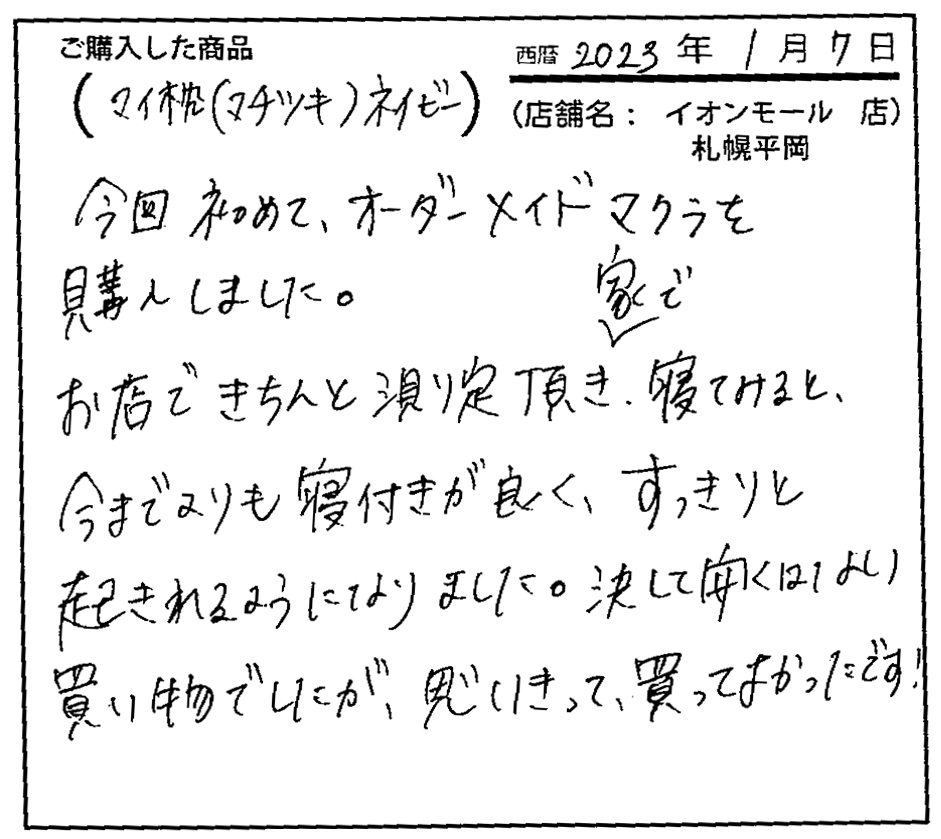 ご購入した商品
西暦 2023 年 1 月 7 日
(マイ枕(マチツキ)ネイビー)
(店舗名： イオンモール 店)
札幌平岡
今回初めて、オーダーメイドマクラを
購入しました。
家で
お店できちんと測り定頂き、寝てみると、
今までよりも寝付きが良く、すっきりと
起きれるようになりました。決して安くはない
買い物でしたが、思いきって、買ってよかったです!